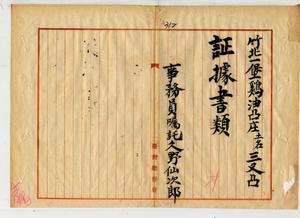 竹北一堡鷄油凸庄土名三叉凸
証據書類
事務員嘱託大野仙次郎